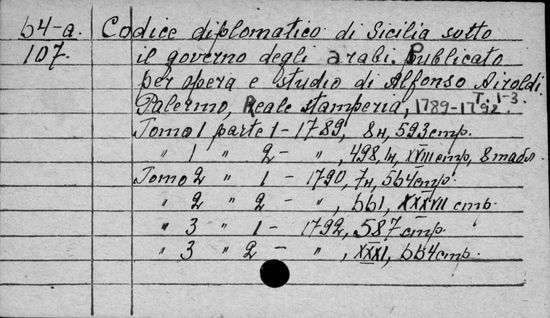 64-а. Codice diplomatico di Sicilia sotto
107. il governo degli arabi. Publicato
per opera e studio di Alfonso Airoldi.
T. 1-3.
Palermo, Reale stamperia, 1789-1792.
Tomo 1 parte 1 - 1789, 8н, 593 стр.
" 1 " 2 - " , 498, 1н, XVIII стр,
Tomo 2 " 1 - 1790, 7н, 564 стр.
" 2 " 2 - " , 661, XXXVII стр.
" 3 " 1 - 1792, 587 стр.
" 3 " 2 - " , XXXI, 664 стр.